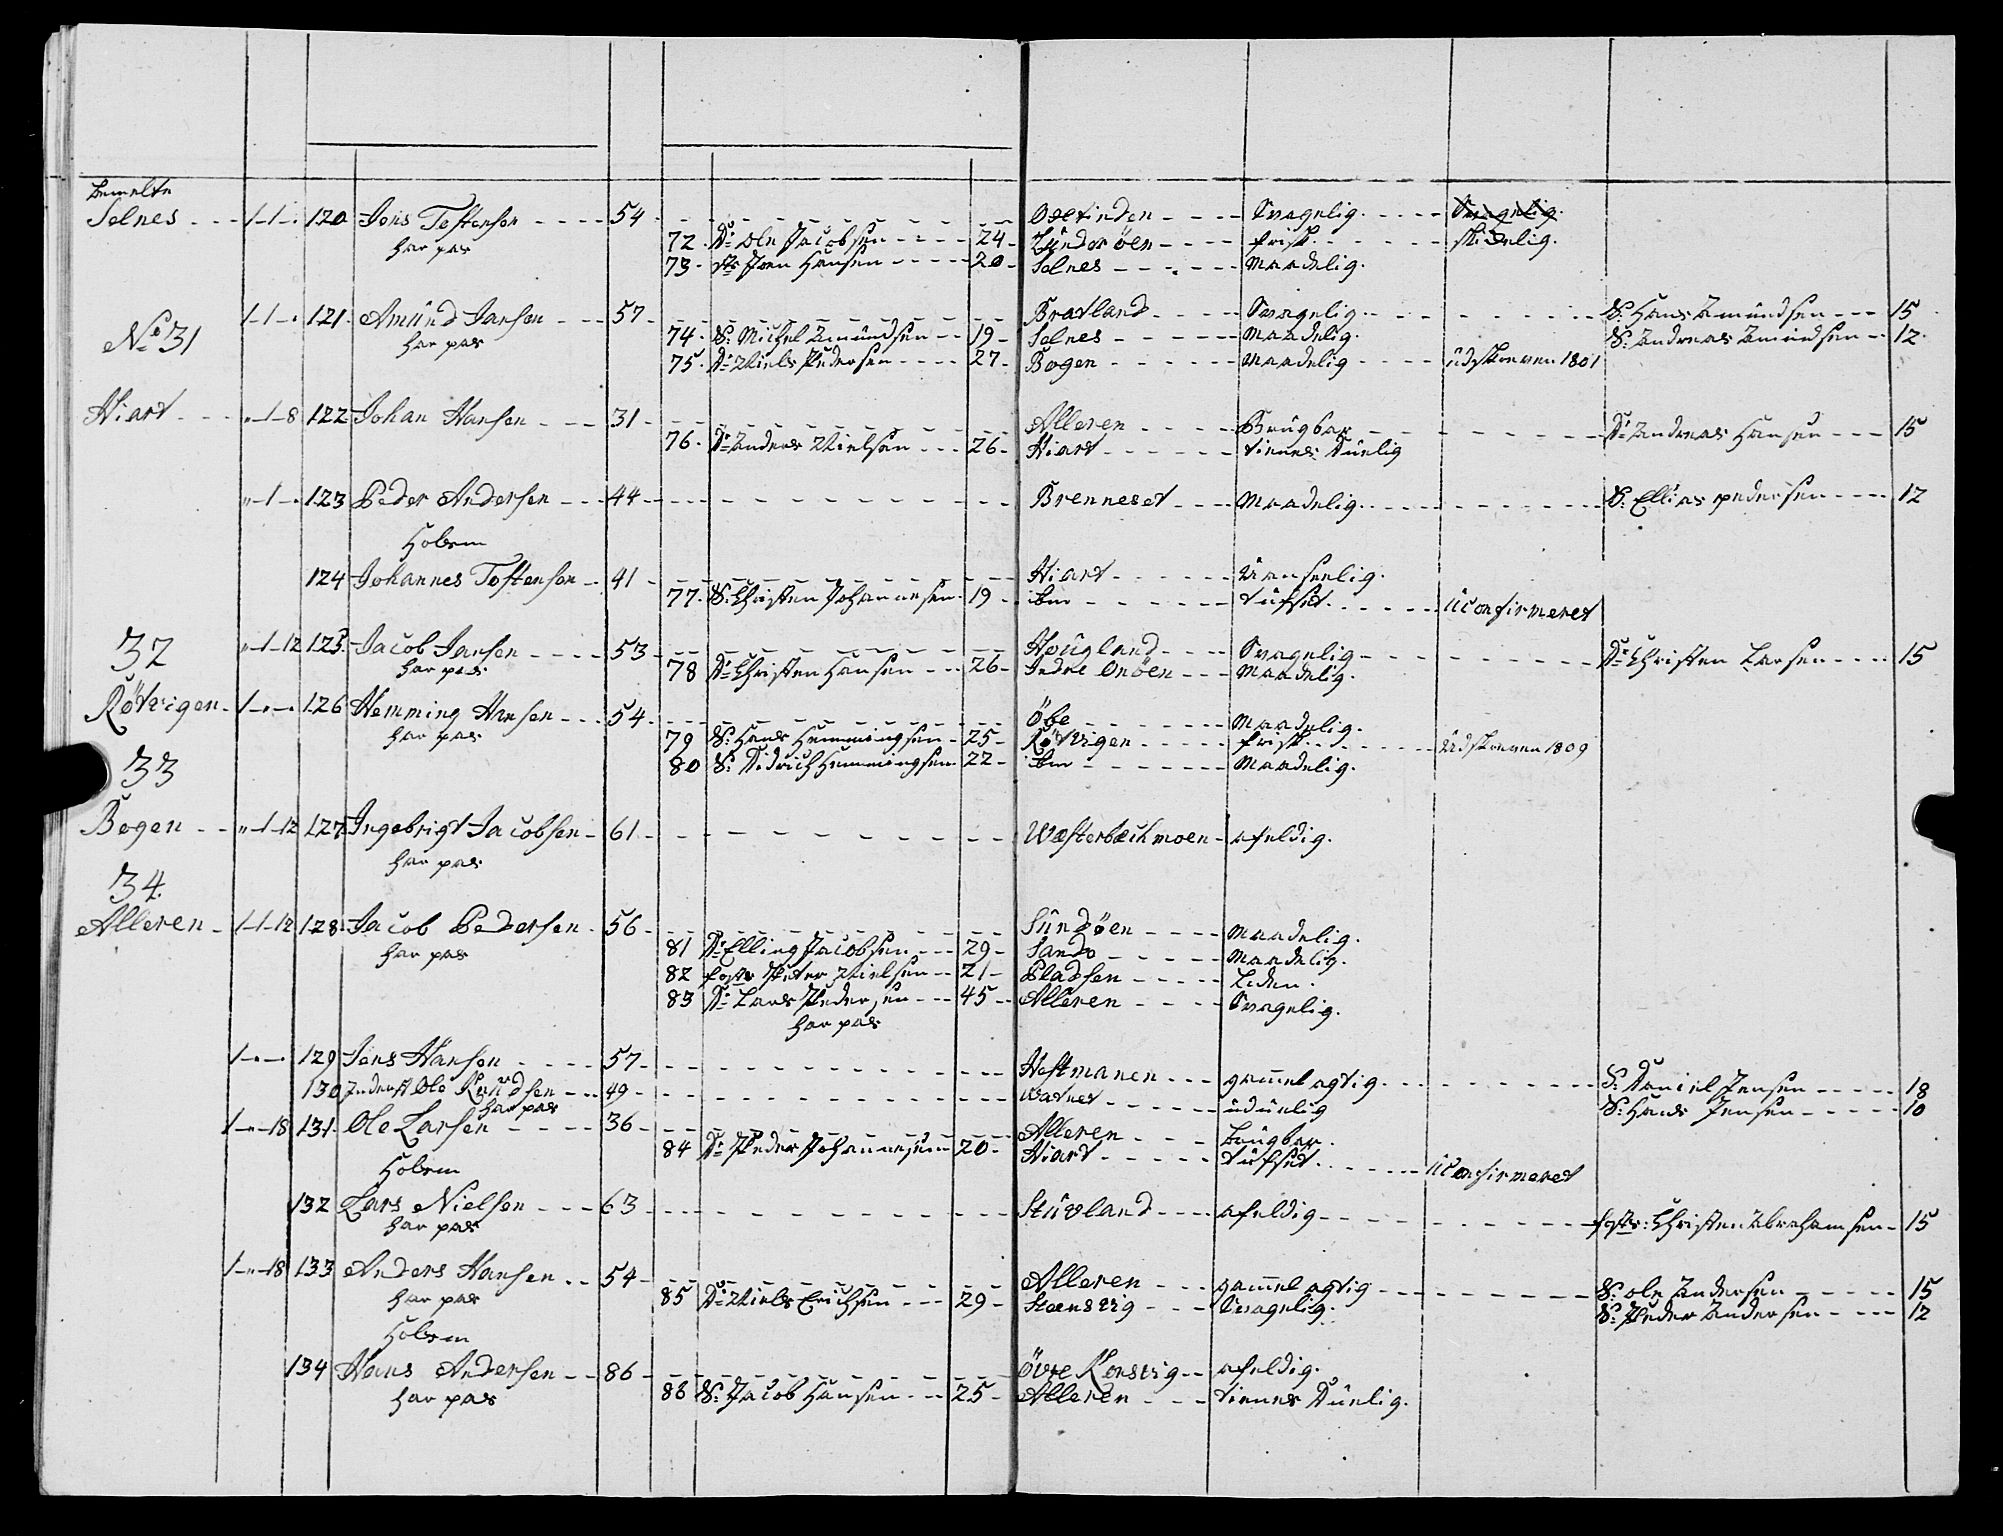 bemelte
Selnes - - - 1-1-. 120 Jens Tostensen - - - - 54 - - - - Oxetinden - - - - Svagelig - - - - Svagelig.
har pas 72. D: Ole Jacobsen - - - - 24 - Zünderöen - - - - frisk - - - - skickelig.
73. Jken Hansen - - - - 20 - Selnes - - - - maadelig.
1-1-. 121. Amünd Jansen - - - 57 - - - - Bratland - - - - Svagelig - - - - S: Hans Amündsen - - - 15
No 31 har pas 74. S: Michel Amündsen - - 19 - Selnes - - - - maadelig. S: Andreas Amündsen - - 12.
75. D: Niels Pedersen - - - - 27. Bogen - - - - maadelig - - - - üdskreven 1801
Hiart - - - „-1-8 122 Johan Hansen - - - 31 - - - - Alleren - - - - Brügbar - - - - D: Andreas Hansen - - - 15
76. D: Anders Nielsen - - - 26 - Hiart - - - - tienes Düelig
„-1-. 123 Peder Andersen - - - 44 - - - - Brenneset - - - - maadelig - - - - S: Ellias pedersen - - - - 12
Hobem
124 Johannes Tostensen - - 41 - - - - Hiart - - - - Uanseelig.
77. S: Christen Johannesen - 19 - ibm - - - - tüfset - - - - üconfirmeret
32 „-1-12 125. Jacob Jansen - - - - 53 - - - - Hoügland - - - - Svagelig - - - - D: Christen Larsen - - - - 15
har pas 78 D: Christen Hansen - - - 26 - Indre Onöen - - - maadelig.
Rötvigen - 1-„-. 126 Hemming Hansen - - - 54 - - - - Öbe - - - - maadelig.
har pas 79 S: Hans Hemmingsen - 25 - Rötvigen - - - - frisk - - - - üdskreven 1809
33 80 S: Didrich Hemmingsen 22 - ibm - - - - maadelig.
Bogen - - „-1-12 127 Ingebrigt Jacobsen - 61 - - - - Wæsterbæchmoen - afeldig.
har pas
34.
Alleren - 1-1-12 128. Jacob Pedersen - 56 - - - - Sündöen - - - - maadelig.
har pas 81 D: Elling Jacobsen - - - 29 - Sando - - - - maadelig.
82 fost: Peter Nielsen - - 21 - Pladsen - - - - Liden.
83 D: Lars Pedersen - - - 45 - Alleren - - - - Svagelig.
har pas
1-„-. 129 Jens Hansen - - - - 57 - - - - Hestmanen - - - gammelagtig - - - - S: Daniel Jensen - - - - 18
130 Inderst Ole Knüdsen - - - 49 - - - - Watnet - - - - üdüelig S: Hans Jensen - - - - 10
har pas
1-„-18 131. Ole Larsen - - - - 36 - - - - Alleren - - - - brügbar.
84 D: Peder Johannesen 20 - Hiart - - - - tüfset - - - - üconfirmeret
Hobem
132 Lars Nielsen - - - 63 - - - - Stüvland - - - - afeldig - - - - fost: Christen Abrahamsen - 15
har pas
1-„-18 133 Anders Hansen - - 54 - - - - Alleren - - - gammelagtig - - - - S: Ole Andersen - - - - 15
har pas 85 D: Niels Erichsen - - - 29 - Steensvig - - - Svagelig. S: Peder Andersen - - - - 12
Hobem
134 Hans Andersen - - 86 - - - - Övre Konsvig - - afeldig.
har pas 86 S: Jacob Hansen - - - 25 - Alleren - - - tienes Düelig.